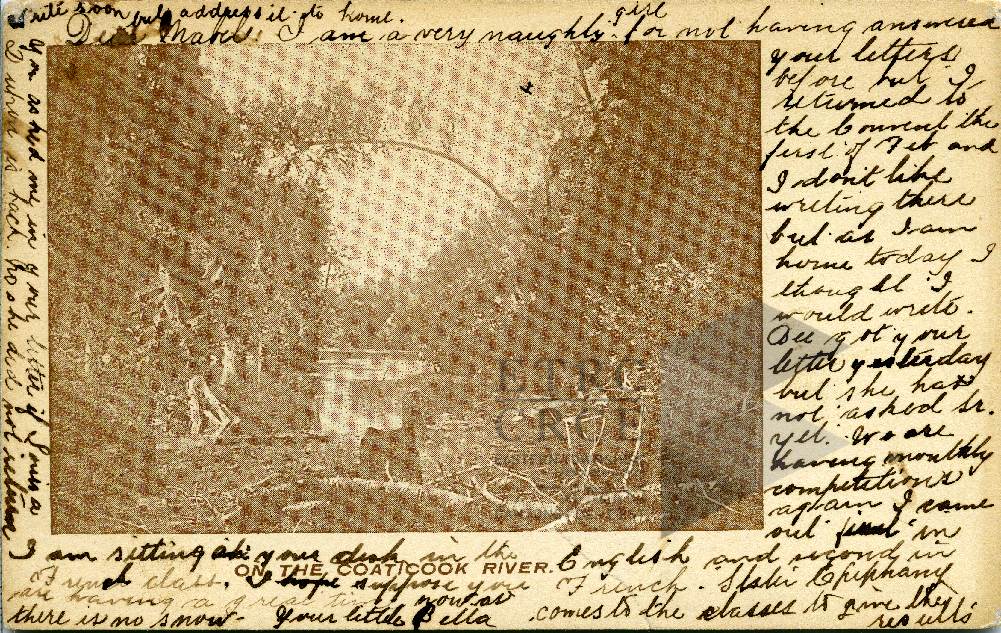 Write soon but address it to home.
Dear Mabel. I am a very naughty girl for not having answered
your letters
before but I
returned to
the Convent the
first of Feb and
I dont like
writing there
but as I am
home today I
thought I
would write.
Dee got your
letter yesterday
but she has
not asked Sr.
yet. We are
having monthly
competitions
again I came
out first in
English and second in
French. Sister Epiphany
comes to the classes to give the
results
I am sitting at your desk in the
French class. I hope suppose you
are having a great time now as
there is no snow. Your little Bella
You asked me in your letter if Louisa
did not return
ON THE COATICOOK RIVER.
ETRC
CRCE